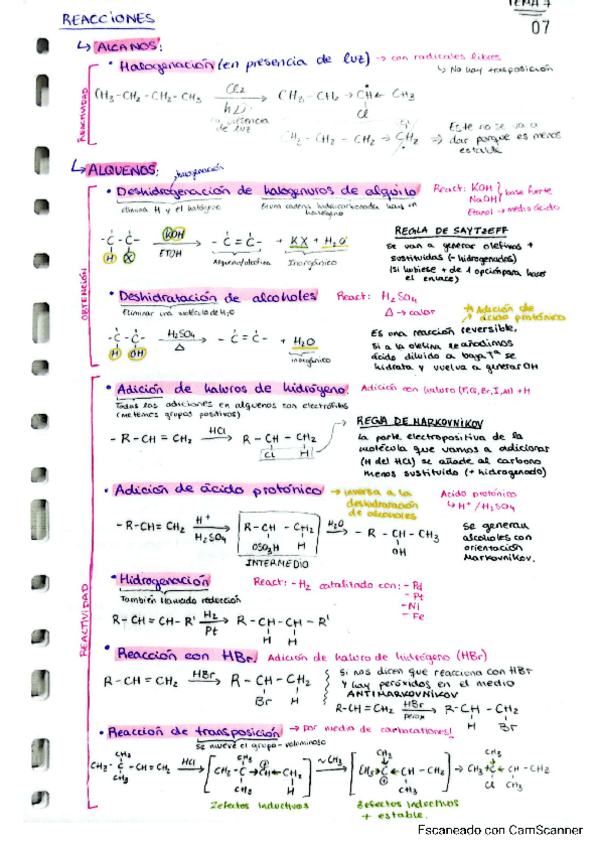 TEMA 7
07
REACCIONES
↳ ALCANOS:
REACTIVIDAD
• Halogenación (en presencia de luz) → con radicales libres
↳ No hay trasposición
CH3-CH2-CH2-CH3 Cl2 hν CH3-CH2 → CH ← CH3
en presencia de luz
Cl
CH3-CH2-CH2 → CH2 ⇒ Este no se va a
dar porque es menos
estable
↳ ALQUENOS:
OBTENCIÓN
• Deshidrogenación de halogenuros de alquilo React: KOH
NaOH } base fuerte
Etanol → medio ácido
elimina H y el halógeno
-C-C- KOH -C=C- + KX + H2O
H X ETOH Inorgánico
REGLA DE SAYTZEFF
se van a generar olefinas +
sustituidas (- hidrogenados)
(si hubiese + de 1 opción para hacer
el enlace)
• Deshidratación de alcoholes React: H2SO4
Eliminar una molécula de H2O
Δ → calor
* Adición de
ácido protónico
-C-C- H2SO4 -C=C- + H2O
H OH Δ inorgánico
Es una reacción reversible.
Si a la olefina le añadimos
ácido diluido a baja Tª se
hidrata y vuelve a generar OH
REACTIVIDAD
• Adición de haluros de hidrógeno: Adición con haluro (F, Cl, Br, I, At) + H
Todas las adiciones en alquenos son electrófilas
(metemos grupos positivos)
- R-CH=CH2 HCl R-CH-CH2
Cl H
REGLA DE MARKOVNIKOV
La parte electropositiva de la
molécula que vamos a adicionar
(H del HCl) se añade al carbono
menos sustituido (+ hidrogenado)
• Adición de ácido protónico → inversa a la
deshidratación
de alcoholes
Acido protónico
↳ H+ / H2SO4
- R-CH=CH2 H+ H2SO4 R-CH-CH2 H2O - R-CH-CH3
OSO3H H OH
INTERMEDIO
se generan
alcoholes con
orientación
Markovnikov.
• Hidrogenación React: - H2 catalitado con: - Pd
- Pt
- Ni
- Fe
También llamado reducción
R-CH=CH-R' H2 Pt R-CH-CH-R'
H H
• Reacción con HBr. Adición de haluro de hidrógeno (HBr)
R-CH=CH2 HBr R-CH-CH2
Br H
Si nos dicen que reacciona con HBr
y hay peróxidos en el medio
ANTIMARKOVNIKOV
R-CH=CH2 HBr perox R-CH-CH2
H Br
• Reacción de transposición → por medio de carbocationes!
se mueve el grupo + voluminoso
CH3-C-CH=CH2 HCl [CH3-C→CH←CH2] ~CH3 [CH3→C←CH-CH2] → CH3-C-CH-CH2
CH3 CH3 H CH3 H Cl CH3
2 efectos inductivos
3 efectos inductivos
+ estable.
Escaneado con CamScanner